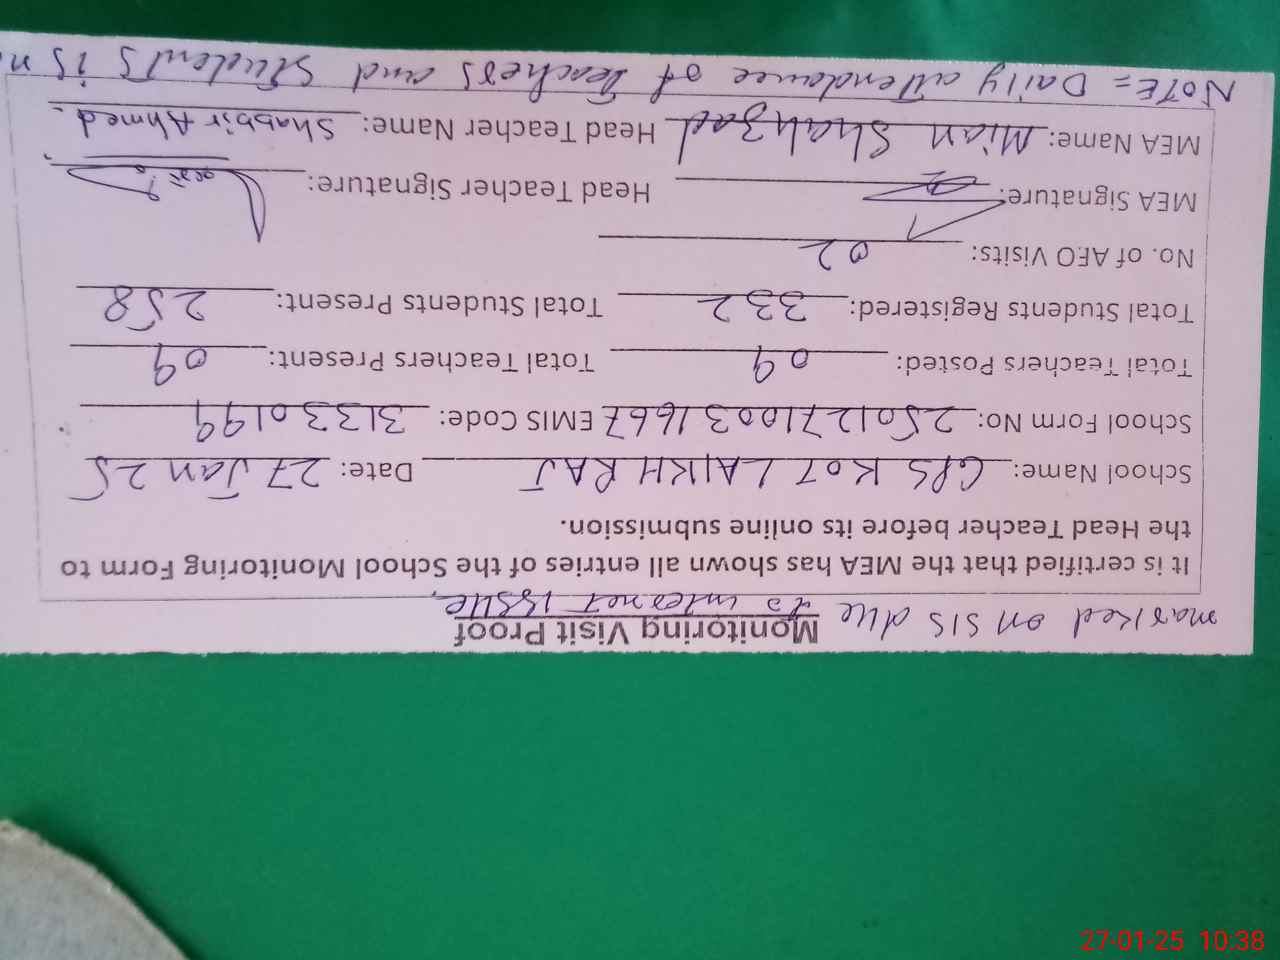 marked on SIS due to internet issue,
Monitoring Visit Proof
It is certified that the MEA has shown all entries of the School Monitoring Form to
the Head Teacher before its online submission.
School Name: GPS KOT LAIKH RAJ Date: 27 Jan 25
School Form No: 25012710031667 EMIS Code: 31330199
Total Teachers Posted: 09 Total Teachers Present: 09
Total Students Registered: 332 Total Students Present: 258
No. of AEO Visits: 02
MEA Signature: Head Teacher Signature:
MEA Name: Mian Shahzad Head Teacher Name: Shabbir Ahmed.
NOTE= Daily attendance of Teachers and Students is n
27-01-25 10:38